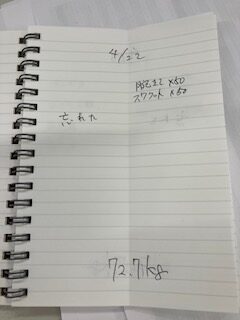 4/22
腕立て×50
スクワット×50
忘れた
72.7kg